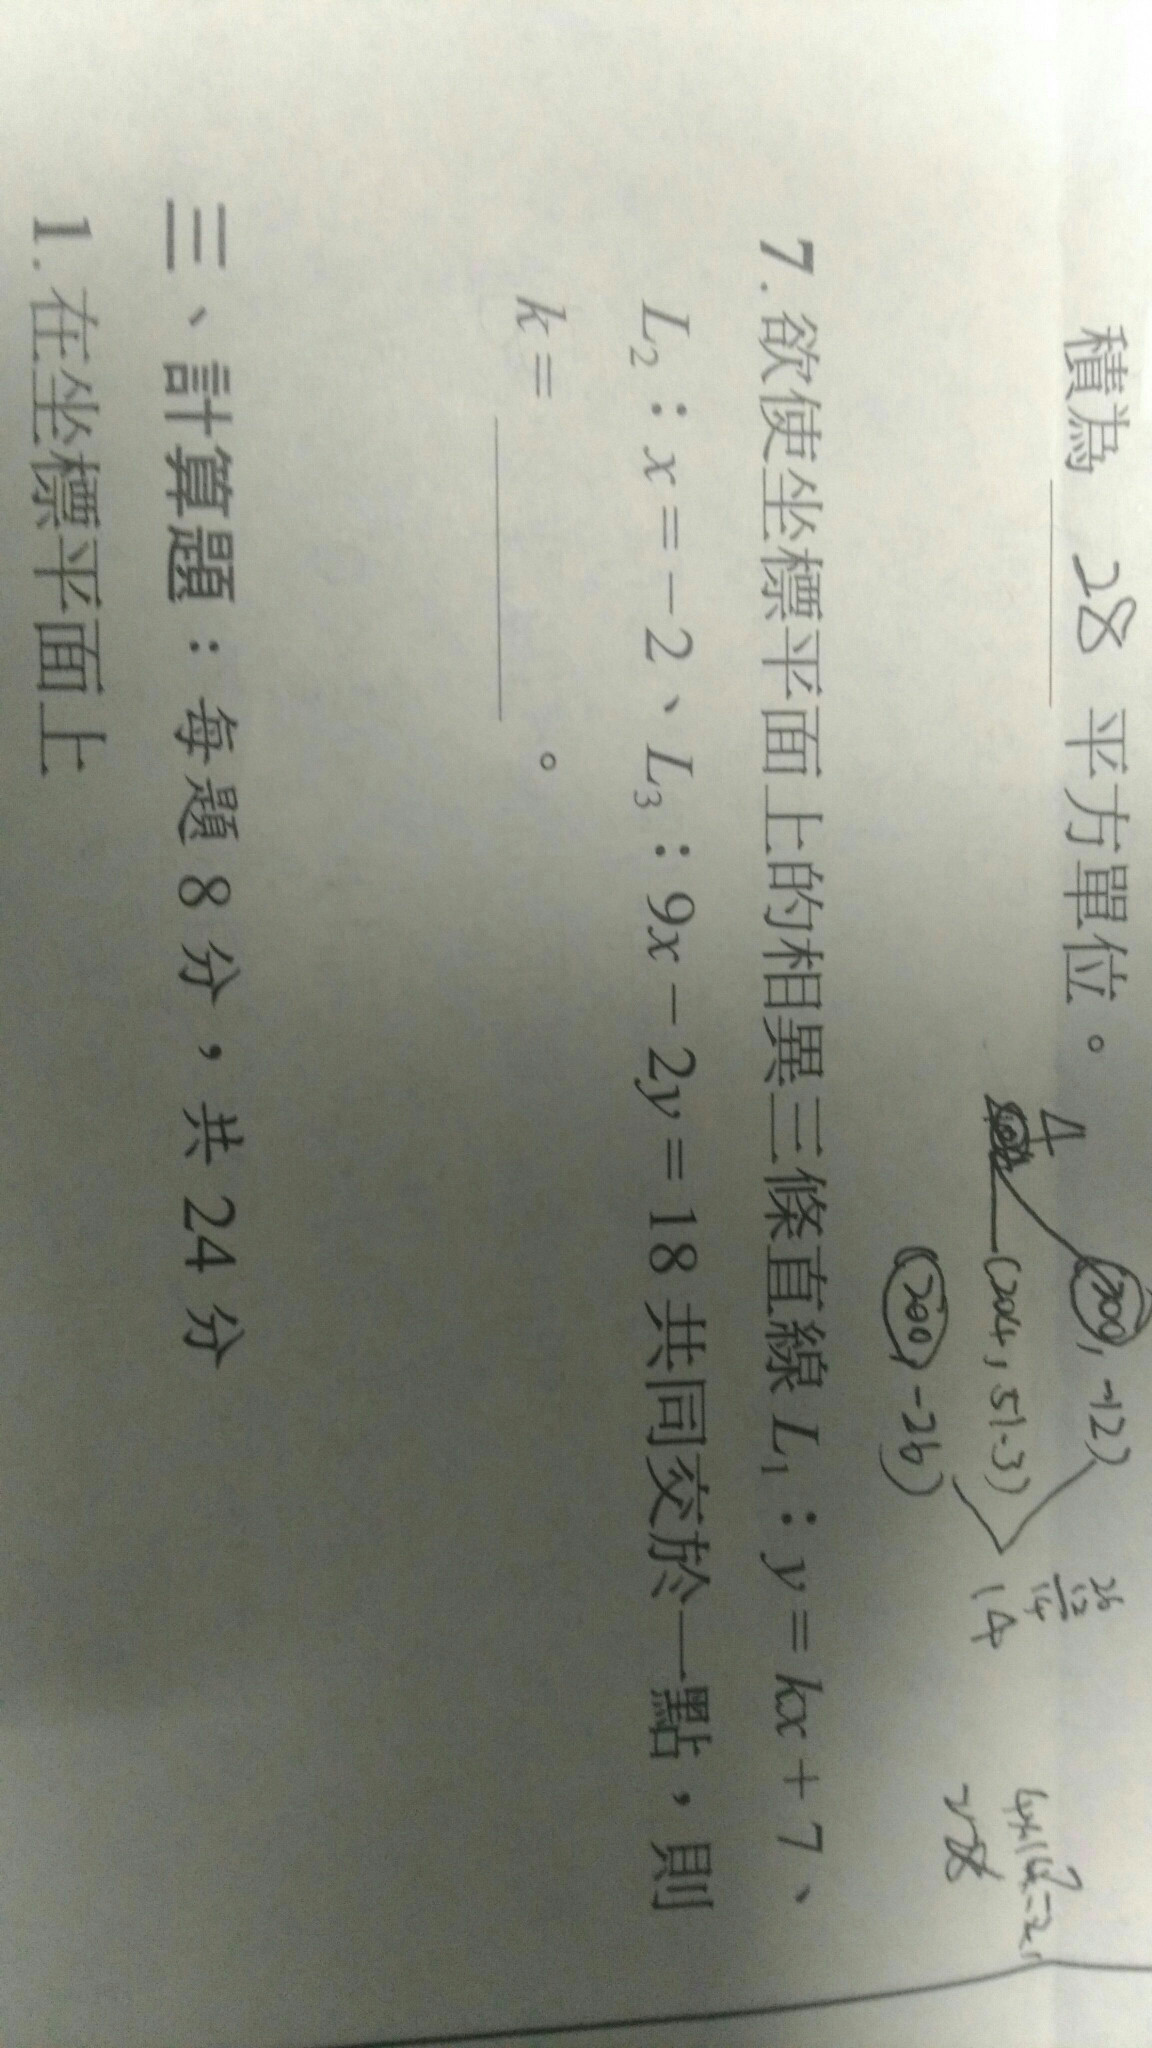 積為 28 平方單位。
4
(200, -12)
(204, 51.3)
(200, -26)
26
12
14
14
28
7.欲使坐標平面上的相異三條直線 L₁：y = kx + 7、
L₂：x = -2、L₃：9x - 2y = 18 共同交於一點，則
k = ______。
三、計算題：每題 8 分，共 24 分
1.在坐標平面上